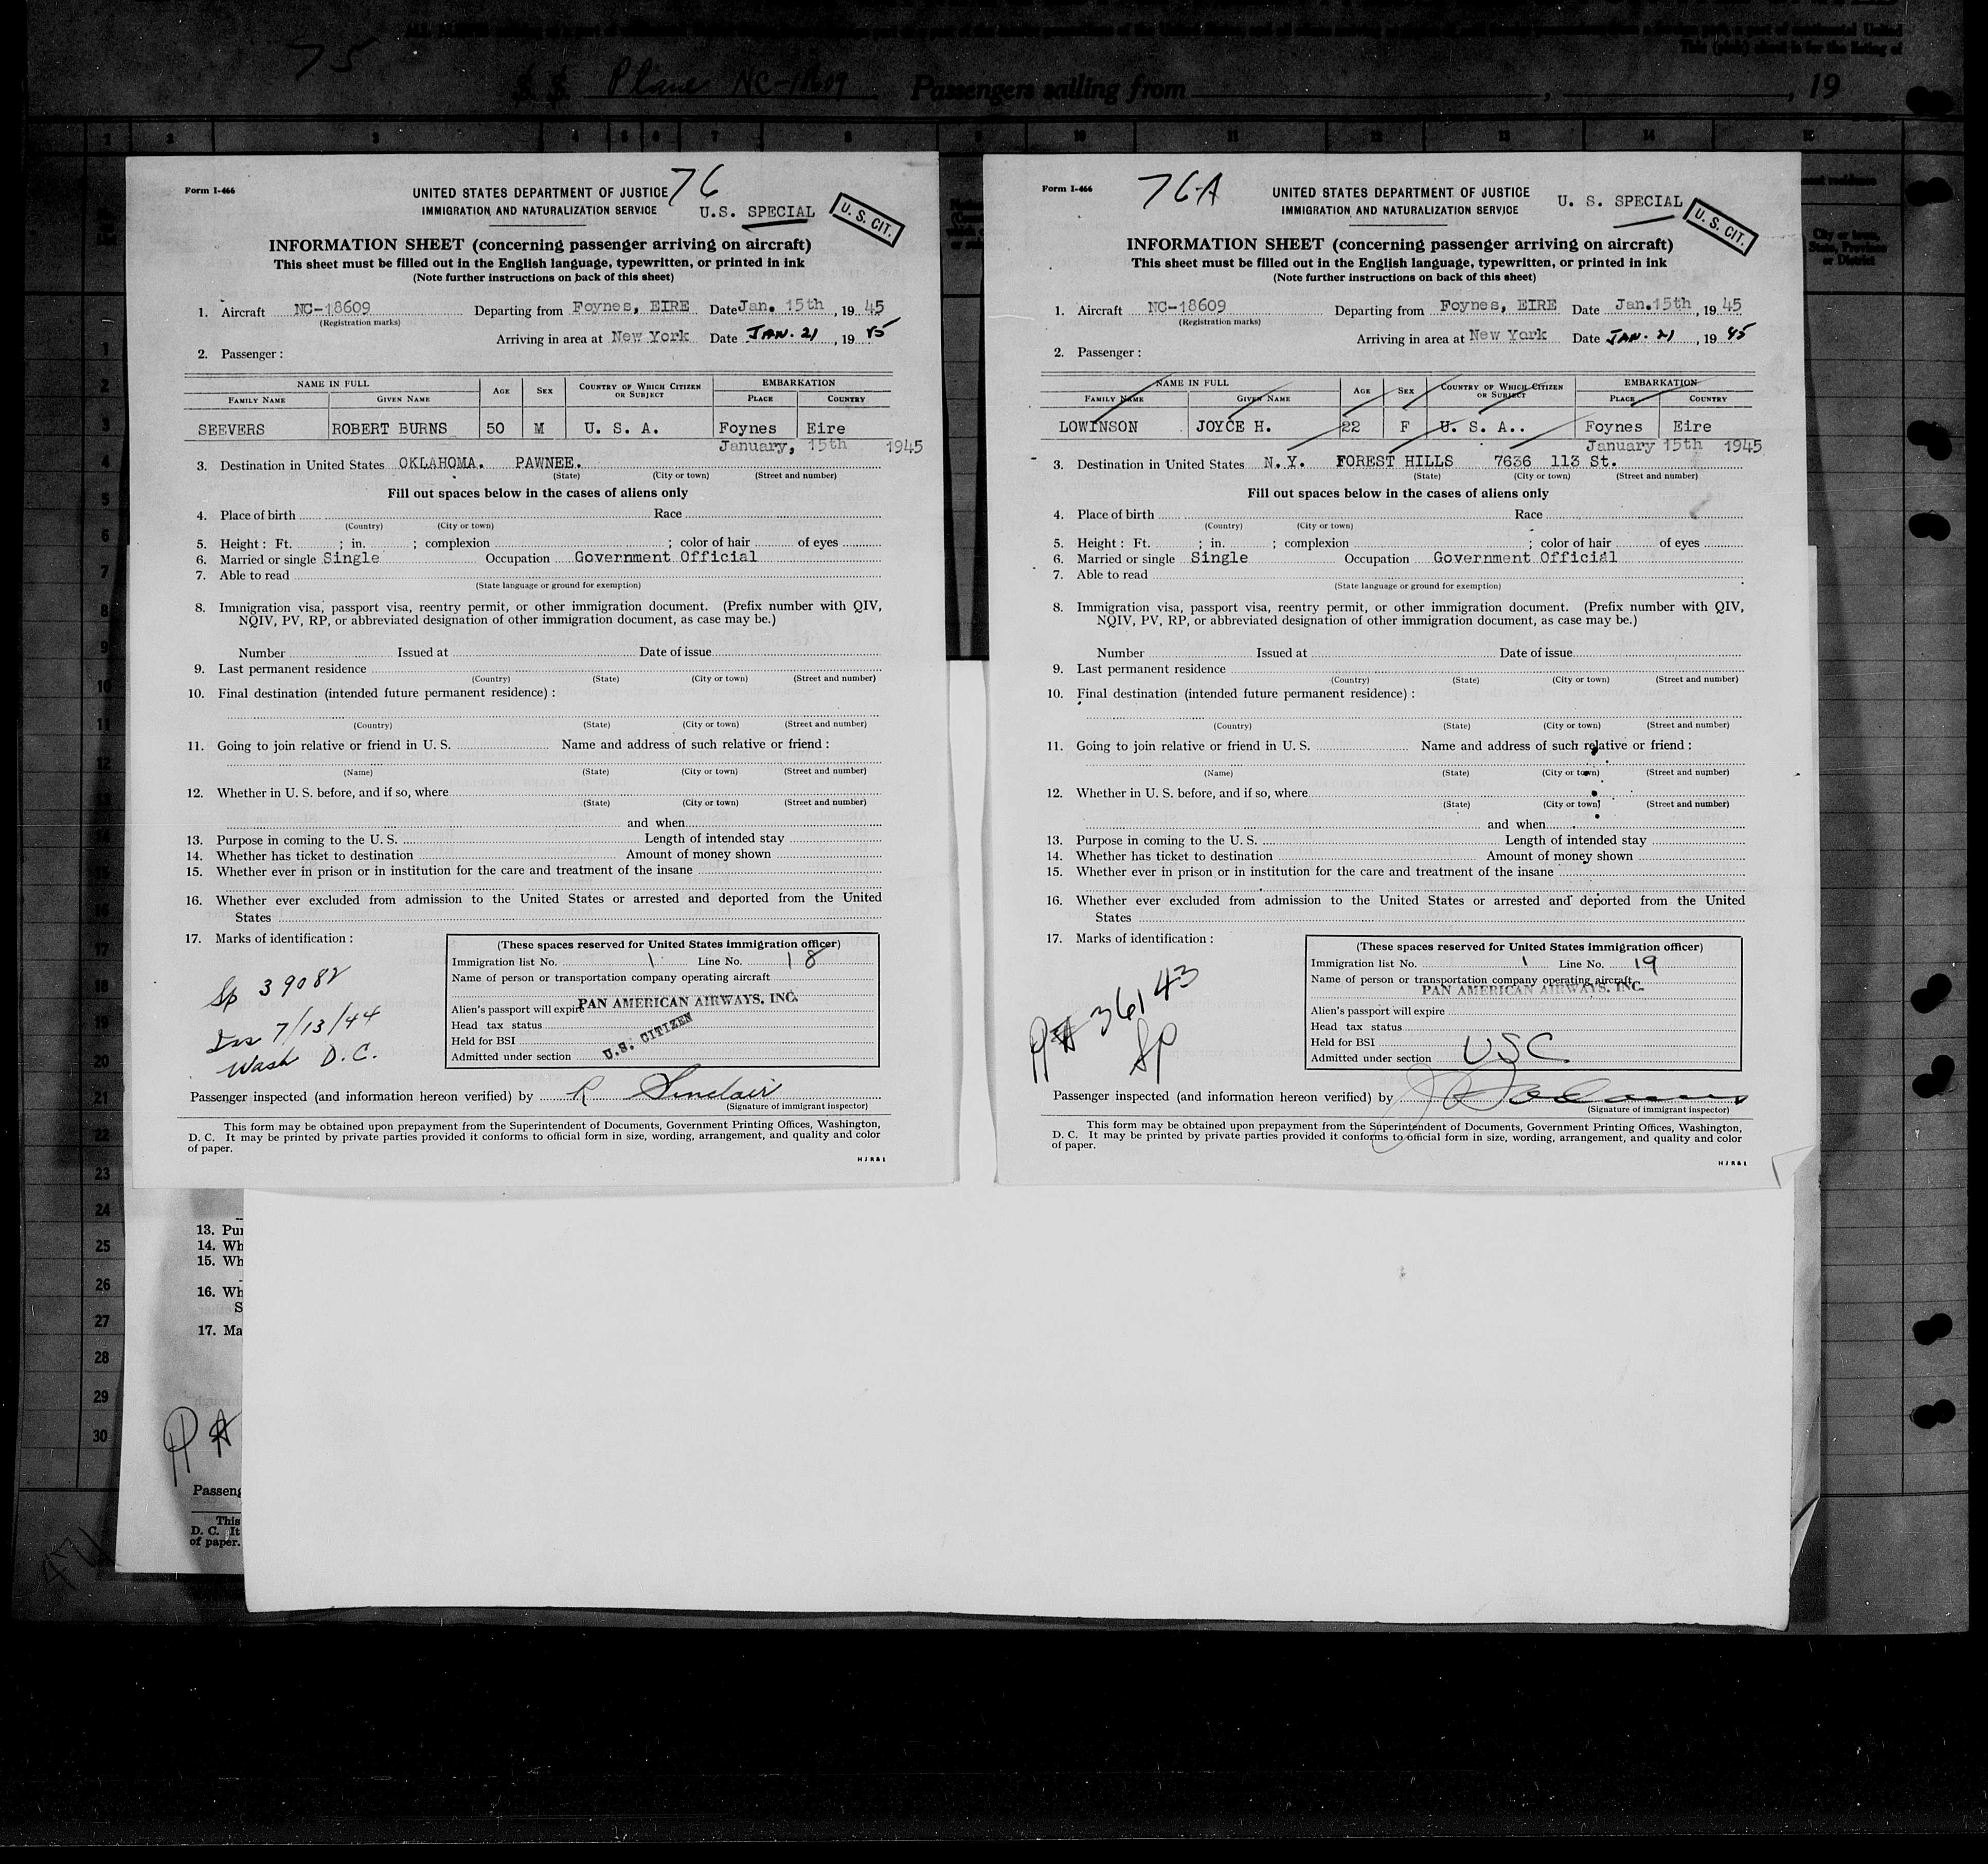 75
S. S. Plane NC-18609 Passengers sailing from , , 19
1 2 3 4 5 6 7 8 9 10 11 12 13 14 15
Form I-466
76
UNITED STATES DEPARTMENT OF JUSTICE
IMMIGRATION AND NATURALIZATION SERVICE
U.S. SPECIAL
U. S. CIT.
INFORMATION SHEET (concerning passenger arriving on aircraft)
This sheet must be filled out in the English language, typewritten, or printed in ink
(Note further instructions on back of this sheet)
1. Aircraft NC-18609 Departing from Foynes, EIRE Date Jan. 15th, 19 45
(Registration marks)
Arriving in area at New York Date JAN. 21, 19 45
2. Passenger:
NAME IN FULL AGE SEX COUNTRY OF WHICH CITIZEN OR SUBJECT EMBARKATION
FAMILY NAME GIVEN NAME PLACE COUNTRY
SEEVERS ROBERT BURNS 50 M U. S. A. Foynes Eire
January, 15th 1945
3. Destination in United States OKLAHOMA. PAWNEE.
(State) (City or town) (Street and number)
Fill out spaces below in the cases of aliens only
4. Place of birth Race
(Country) (City or town)
5. Height: Ft. ; in. ; complexion ; color of hair of eyes
6. Married or single Single Occupation Government Official
7. Able to read
(State language or ground for exemption)
8. Immigration visa, passport visa, reentry permit, or other immigration document. (Prefix number with QIV,
NQIV, PV, RP, or abbreviated designation of other immigration document, as case may be.)
Number Issued at Date of issue
9. Last permanent residence
(Country) (State) (City or town) (Street and number)
10. Final destination (intended future permanent residence):
(Country) (State) (City or town) (Street and number)
11. Going to join relative or friend in U. S. Name and address of such relative or friend:
(Name) (State) (City or town) (Street and number)
12. Whether in U. S. before, and if so, where
(State) (City or town) (Street and number)
and when
13. Purpose in coming to the U. S. Length of intended stay
14. Whether has ticket to destination Amount of money shown
15. Whether ever in prison or in institution for the care and treatment of the insane
16. Whether ever excluded from admission to the United States or arrested and deported from the United
States
17. Marks of identification:
Sp 39082
Iss 7/13/44
Wash D.C.
(These spaces reserved for United States immigration officer)
Immigration list No. 1 Line No. 18
Name of person or transportation company operating aircraft
PAN AMERICAN AIRWAYS, INC.
Alien's passport will expire
Head tax status
U.S. CITIZEN
Held for BSI
Admitted under section
Passenger inspected (and information hereon verified) by R Sinclair
(Signature of immigrant inspector)
This form may be obtained upon prepayment from the Superintendent of Documents, Government Printing Offices, Washington,
D. C. It may be printed by private parties provided it conforms to official form in size, wording, arrangement, and quality and color
of paper.
H J R & L
Form I-466
76A
UNITED STATES DEPARTMENT OF JUSTICE
IMMIGRATION AND NATURALIZATION SERVICE
U. S. SPECIAL
U. S. CIT.
INFORMATION SHEET (concerning passenger arriving on aircraft)
This sheet must be filled out in the English language, typewritten, or printed in ink
(Note further instructions on back of this sheet)
1. Aircraft NC-18609 Departing from Foynes, EIRE Date Jan.15th, 19 45
(Registration marks)
Arriving in area at New York Date JAN. 21, 19 45
2. Passenger:
NAME IN FULL AGE SEX COUNTRY OF WHICH CITIZEN OR SUBJECT EMBARKATION
FAMILY NAME GIVEN NAME PLACE COUNTRY
LOWINSON JOYCE H. 22 F U. S. A.. Foynes Eire
January 15th 1945
3. Destination in United States N.Y. FOREST HILLS 7636 113 St.
(State) (City or town) (Street and number)
Fill out spaces below in the cases of aliens only
4. Place of birth Race
(Country) (City or town)
5. Height: Ft. ; in. ; complexion ; color of hair of eyes
6. Married or single Single Occupation Government Official
7. Able to read
(State language or ground for exemption)
8. Immigration visa, passport visa, reentry permit, or other immigration document. (Prefix number with QIV,
NQIV, PV, RP, or abbreviated designation of other immigration document, as case may be.)
Number Issued at Date of issue
9. Last permanent residence
(Country) (State) (City or town) (Street and number)
10. Final destination (intended future permanent residence):
(Country) (State) (City or town) (Street and number)
11. Going to join relative or friend in U. S. Name and address of such relative or friend:
(Name) (State) (City or town) (Street and number)
12. Whether in U. S. before, and if so, where
(State) (City or town) (Street and number)
and when
13. Purpose in coming to the U. S. Length of intended stay
14. Whether has ticket to destination Amount of money shown
15. Whether ever in prison or in institution for the care and treatment of the insane
16. Whether ever excluded from admission to the United States or arrested and deported from the United
States
17. Marks of identification:
36143
Sp
(These spaces reserved for United States immigration officer)
Immigration list No. 1 Line No. 19
Name of person or transportation company operating aircraft
PAN AMERICAN AIRWAYS, INC.
Alien's passport will expire
Head tax status
Held for BSI
Admitted under section USC
Passenger inspected (and information hereon verified) by
(Signature of immigrant inspector)
This form may be obtained upon prepayment from the Superintendent of Documents, Government Printing Offices, Washington,
D. C. It may be printed by private parties provided it conforms to official form in size, wording, arrangement, and quality and color
of paper.
H J R & L
13. Pur
14. Wh
15. Wh
16. Wh
S
17. Ma
Passeng
This
D. C. It
of paper.
1
2
3
4
5
6
7
8
9
10
11
12
13
14
15
16
17
18
19
20
21
22
23
24
25
26
27
28
29
30
City or town,
State, Province
or District